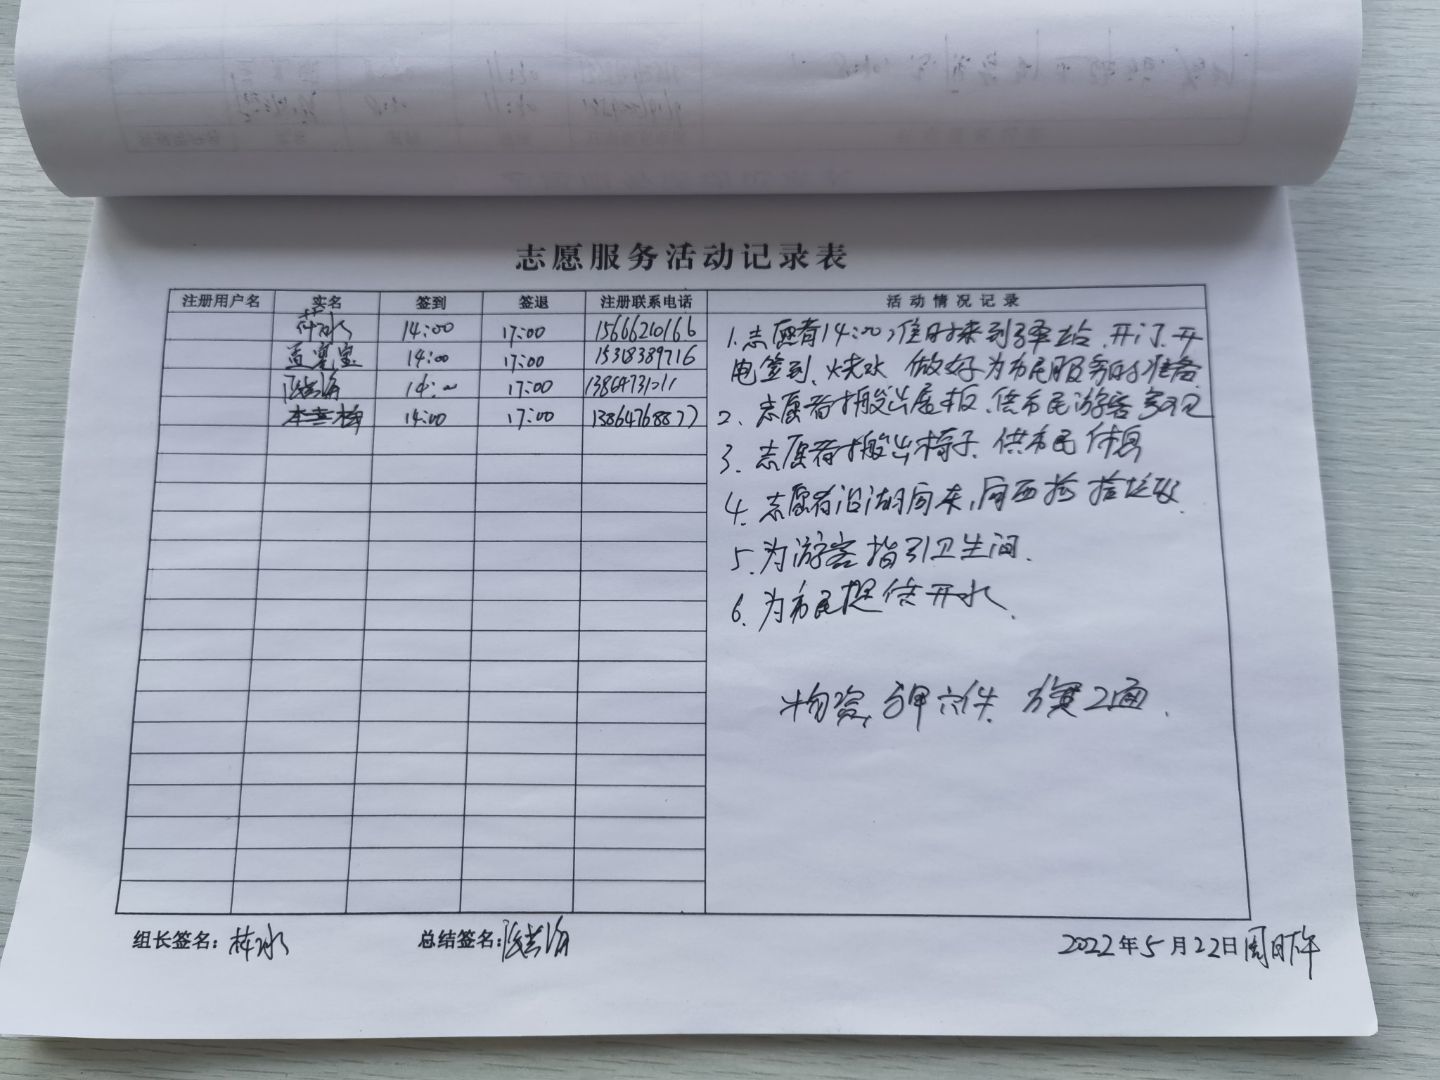 志愿服务活动记录表
注册用户名 实名 签到 签退 注册联系电话 活动情况记录
林冰 14:00 17:00 15666210166
14:00 17:00 15318389716
14:00 17:00 13864731011
14:00 17:00 13864768877
1. 志愿者14:00准时来到驿站、开门、开
电签到、烧水 做好为市民服务的准备
2、志愿者搬出展板、供市民游客参观
3、志愿者搬出椅子、供市民休息
4、志愿者沿湖向东,向西捡拾垃圾
5、为游客指引卫生间.
6、为市民提供开水、
物资、马甲六件、方旗2面、
组长签名:林冰 总结签名: 2022年5月22日周日下午